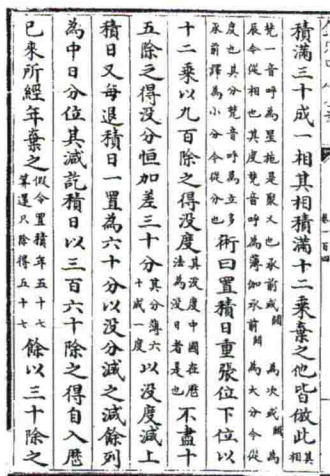 積滿三十成一相其相積滿十二乘棄之他皆倣此其相
梵一音呼為星施是聚又也承前或闕 為次或闕 為
辰今從相也其度梵音呼為薄伽承前闕 為大分今從
度也其分梵音呼為立多
承前譯為小分今從分也
術曰置積日重張位下位以
十二乘以九百除之得没度
其没度中國在厯
法為没日者是也
不盡十
五除之得没分恒加差三十分
其分薄六
十成一度
以没度減上
積日又每退積日一置為六十分以没分減之減餘列
為中日分位其減訖積日以三百六十除之得自入厯
已來所經年棄之
假令置積年五十七
算還只除得五十七
餘以三十除之